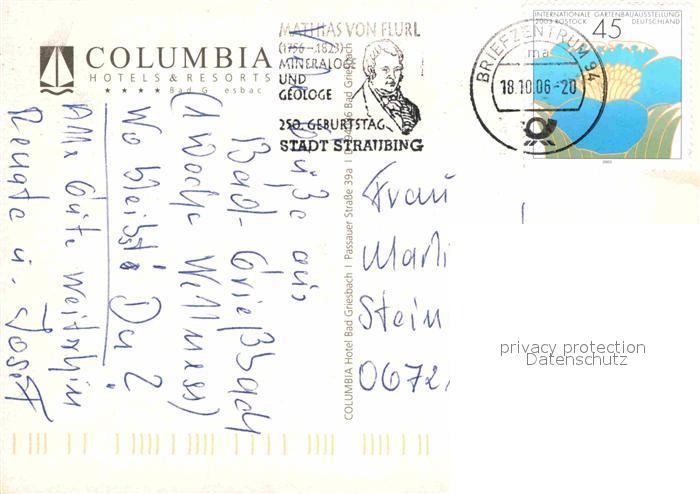 COLUMBIA
HOTELS & RESORTS
★★★★ Bad G esbac
MATHIAS VON FLURL
(1756-1823)
MINERALOGE
UND
GEOLOGE
250. GEBURTSTAG
STADT STRAUBING
BRIEFZENTRUM 94
ma
18.10.06-20
INTERNATIONALE GARTENBAUAUSSTELLUNG
2003 ROSTOCK DEUTSCHLAND
45
2003
Grüße aus
Bad-Grießbach
(1 Woche Wellness)
Wo bleibst Du?
Alles Gute Weiterhin
Renate u. Josef
COLUMBIA Hotel Bad Griesbach | Passauer Straße 39a | D-94086 Bad Griesbach
Frau
Marli
Stein
0672
privacy protection
Datenschutz